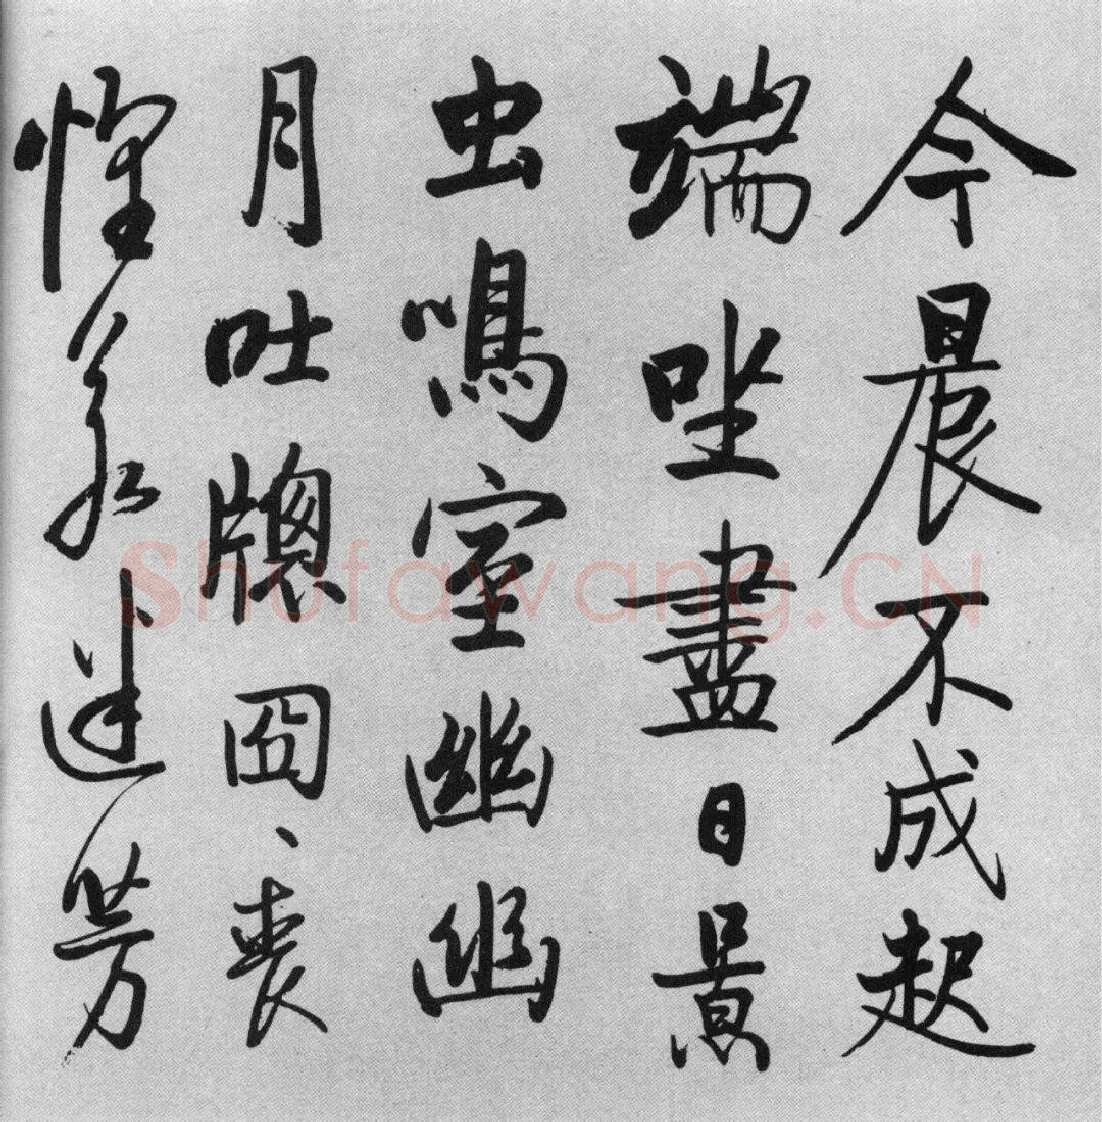 今晨不成起
端坐盡日景
虫鳴室幽幽
月吐牕囧、喪
懷若迷芳
Shufawang.CN